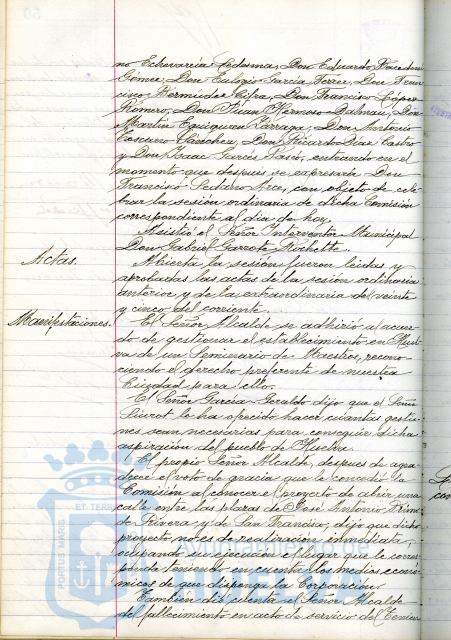 no Echevarría Ledesma, Don Eduardo
Gómez, Don Eulogio García Ferrer, Don Fran-
cisco Bermúdez Cifra, Don Francisco López
Romero, Don Juan Hermoso Dalmau, Don
Martín Eguiguren Párraga, Don Antonio
Toscano Sánchez, Don Ricardo Díaz Castro
y Don Isaac Garcés Pasió, entrando en el
momento que después se expresará Don
Francisco Sedano Arce, con objeto de cele-
brar la sesión ordinaria de dicha Comisión
correspondiente al día de hoy.
Asistió el Señor Interventor Municipal
Don Gabriel Garrote
Actas.
Abierta la sesión fueron leídas y
aprobadas las actas de la sesión ordinaria
anterior y de la extraordinaria del veinte
y cinco del corriente.
Manifestaciones.
El Señor Alcalde se adhirió al acuer-
do de gestionar el establecimiento en Huel-
va de un Seminario de Maestros, recono-
ciendo el derecho preferente de nuestra
Ciudad para ello.
El Señor García-Geraldo dijo que el Señor
Siurot le ha ofrecido hacer cuantas gestio-
nes sean necesarias para conseguir dicha
aspiración del pueblo de Huelva.
El propio Señor Alcalde, después de agra-
decer el voto de gracia que le concedió la
Comisión al conocer el proyecto de abrir una
calle entre las plazas de José Antonio Primo
de Rivera y de San Francisco, dijo que dicho
proyecto no es de realización inmediata,
ocupando su ejecución el lugar que le corres-
ponde teniendo en cuenta los medios econó-
micos de que disponga la Corporación.
También dió cuenta el Señor Alcalde
del fallecimiento en acto de servicio del Tenien-
PORTUS MARIS
ET TERR
Ayuntamiento de
HUELVA